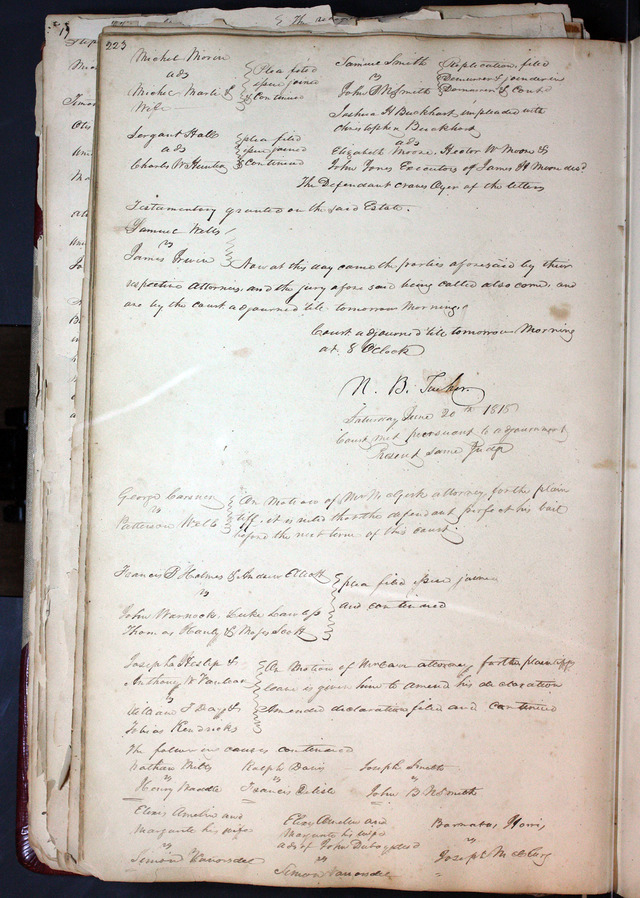 223
Michel Morin
ads
Michel Marli &
Wife
Plea filed
issue joined
& continued
Samuel Smith
vs
John B N Smith
Replication filed
Demurrer & joinder in
Demurrer & Cont
Sergant Hall
ads
Charles W Hunter
plea filed
issue joined
& continued
Joshua H Buckhart impleaded with
Christopher Buckhart
ads
Elizabeth Moore, Hector W Moore &
John Jones Executors of James H Moore decd
The Defendant craves Oyer of the letters
Testamentary granted on the said Estate.
Samuel Wells
vs
James Irwin
Now at this day came the parties aforesaid by their
respective attornies, and the jury afore said being called also come, and
are by the court adjourned till tomorrow Morning
Court adjourned till tomorrow Morning
at 8 OClock
N. B. Tucker
Saturday June 20th 1818
Court met persuant to adjournment
Present same Judge
George Cannon
vs
Patterson Webb
On Motion of Mr McGirk attorney for the plain
tiff, it is ruled that the defendant perfect his bail
before the next term of this court
Francis P Holmes & Andrew Elliott
vs
John Warnock, Luke Lawless
Thomas Hanly & Moses Scott
plea filed issue joined
and continued
Joseph Heslip &
Anthony W Vanlear
vs
William T Day &
Tobias Kendricks
On Motion of Mr Carr attorney for the plaintiffs
leave is given him to amend his declaration
Amended declaration filed and continued
The following causes continued
Nathan Mills
vs
Henry Waddle
Ralph Davis
vs
Francis Delisle
Joseph Smith
vs
John B N Smith
Elias Amelin and
Margurite his wife
vs
Simon Vanorsdel
Elias Amelin and
Margurite his wife
vs
Simon Vanorsdel
Barnabas Harris
vs
Joseph